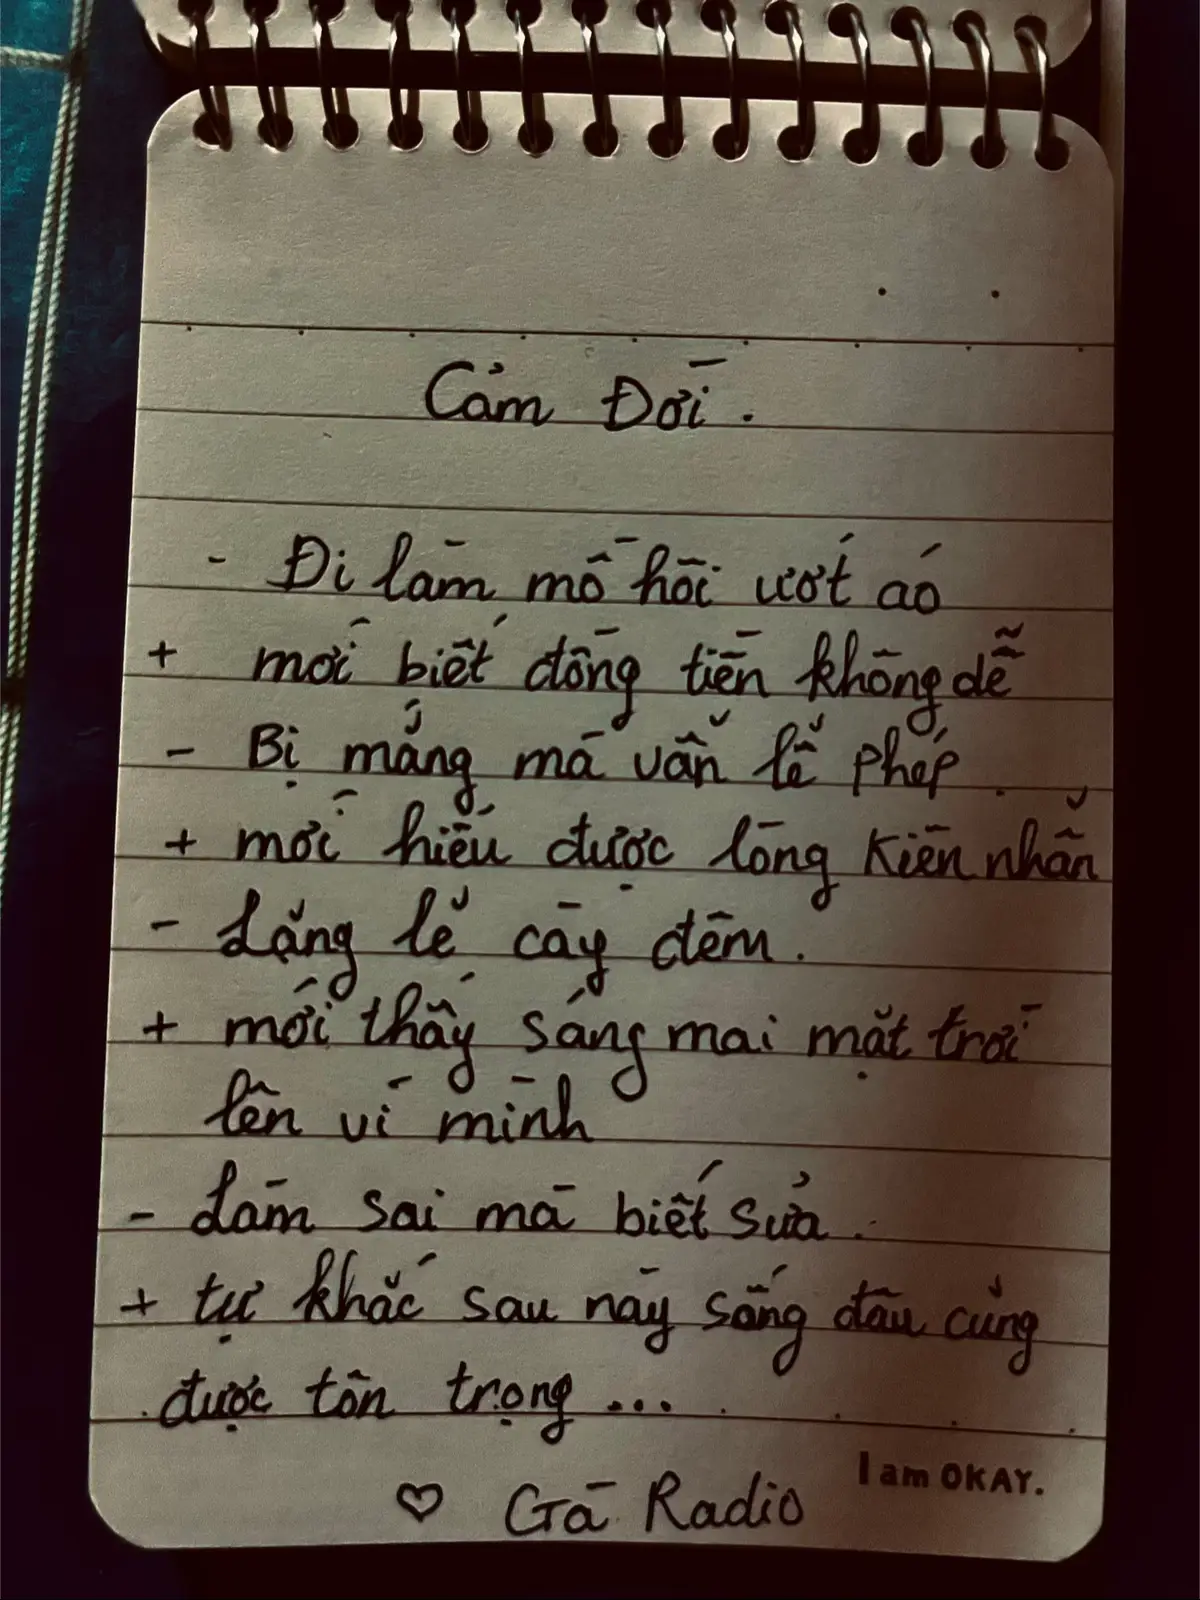 Cảm Đời.
- Đi làm mồ hôi ướt áo
+ mới biết đồng tiền không dễ
- Bị mắng mà vẫn lễ phép.
+ mới hiểu được lòng kiên nhẫn
- Lặng lẽ cày đêm.
+ mới thấy sáng mai mặt trời
lên vì mình
- Làm sai mà biết sửa.
+ tự khắc sau này sống đâu cũng
được tôn trọng...
I am OKAY.
♡ Gà Radio